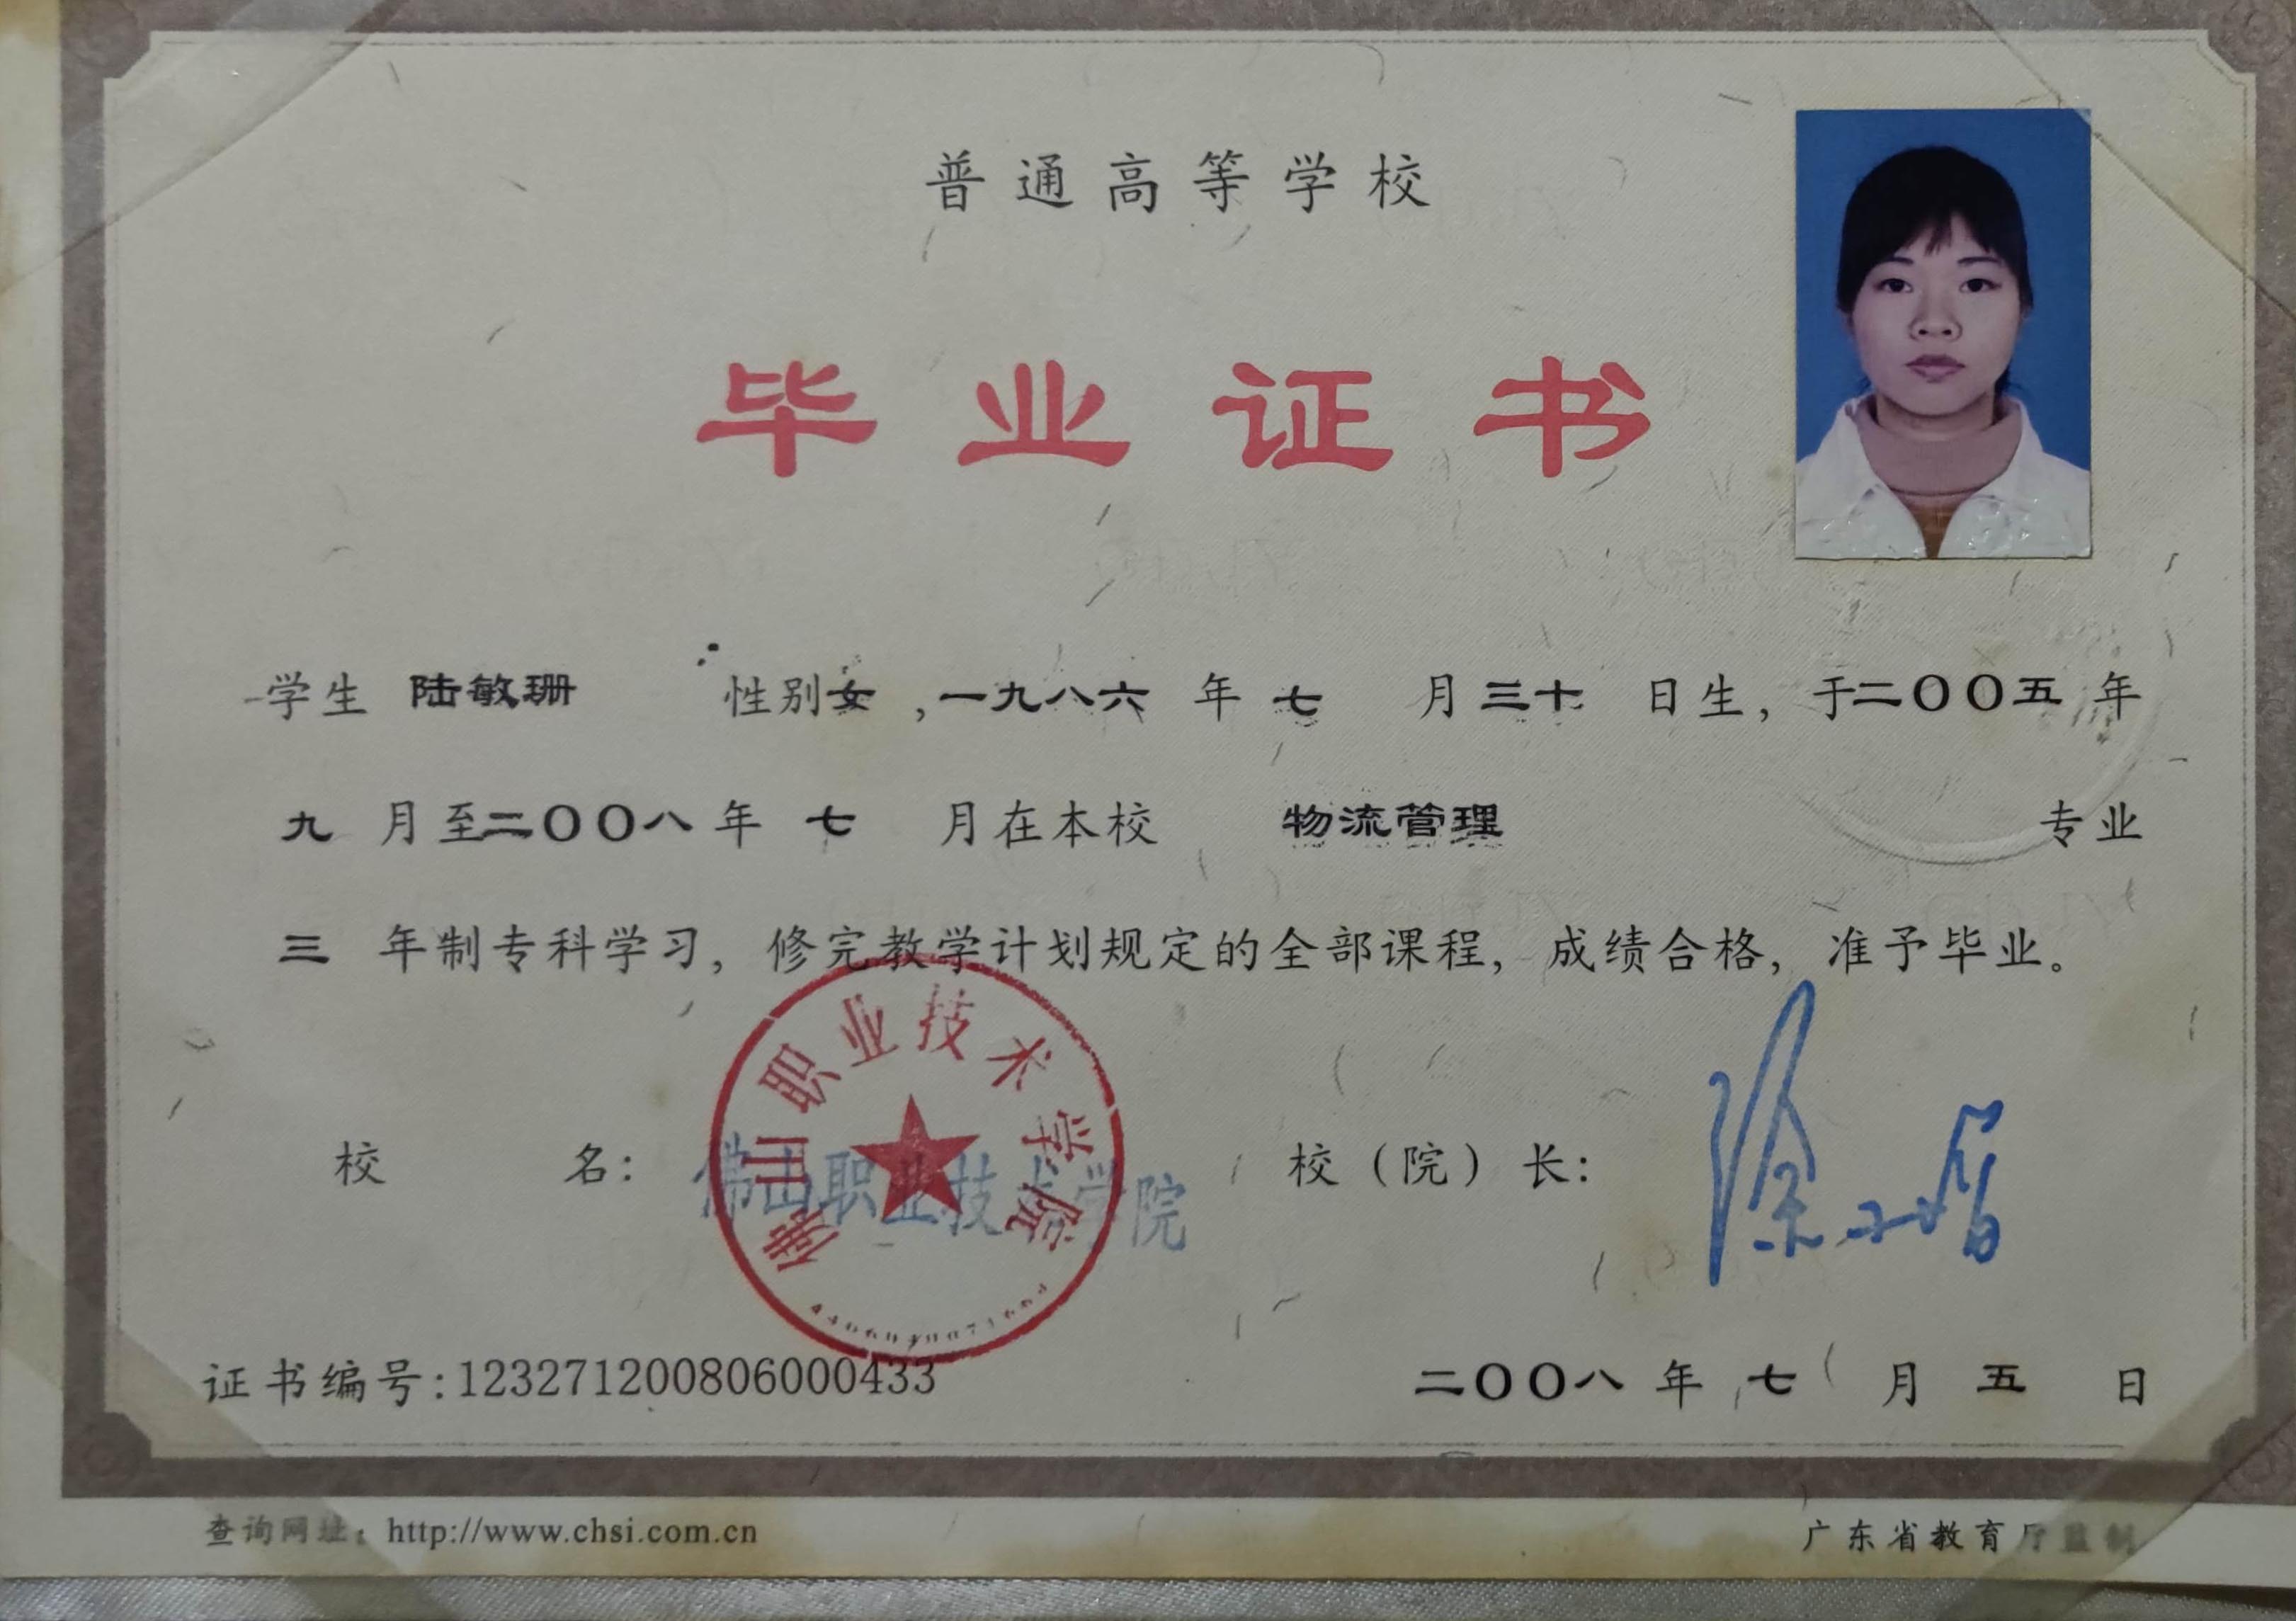 普通高等学校
毕业证书
学生 陆敏珊 性别女，一九八六年七月三十日生，于二〇〇五年
九月至二〇〇八年七月在本校 物流管理 专业
三年制专科学习，修完教学计划规定的全部课程，成绩合格，准予毕业。
佛山职业技术学院
校名：佛山职业技术学院 校（院）长：
证书编号:123271200806000433 二〇〇八年七月五日
查询网址：http://www.chsi.com.cn 广东省教育厅监制